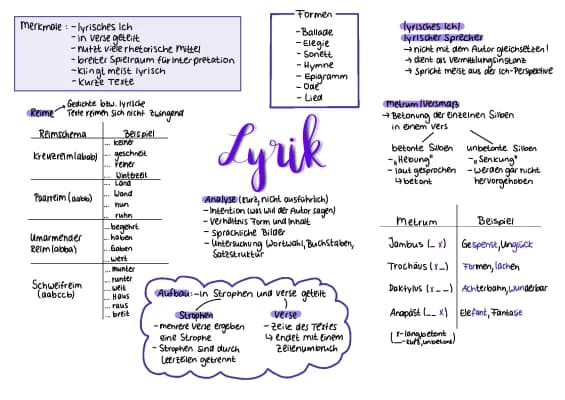 Merkmale: - lyrisches Ich
- in Verse geteilt
- nutzt viele rhetorische Mittel
- breiter Spielraum für Interpretation
- klingt meist lyrisch
- kurze Texte
Formen
- Ballade
- Elegie
- Sonett
- Hymne
- Epigramm
- Ode
- Lied
lyrisches Ich/
lyrischer Sprecher
→ nicht mit dem Autor gleichsetzen!
→ dient als Vermittlungsinstanz
→ spricht meist aus der Ich-Perspektive
Reime → Gedichte bzw. lyrische
Texte reimen sich nicht zwingend
Reimschema Beispiel
Kreuzreim (abab)
... keiner
... geschneit
... feiner
... Winterzeit
Paarreim (aabb)
... Land
... Wand
... nun
... ruhn
Umarmender
Reim (abba)
... begehrt
... haben
... Gaben
... wert
Schweifreim
(aabccb)
... munter
... runter
... weit
... Haus
... raus
... breit
Lyrik
Analyse (kurz, nicht ausführlich)
- Intention (was will der Autor sagen)
- Verhältnis Form und Inhalt
- Sprachliche Bilder
- Untersuchung Wortwahl, Buchstaben,
Satzstruktur
Aufbau: - in Strophen und Verse geteilt
Strophen
- mehrere Verse ergeben
eine Strophe
- Strophen sind durch
Leerzeilen getrennt
Verse
- Zeile des Textes
↳ endet mit einem
Zeilenumbruch
Metrum/Versmaß
→ Betonung der einzelnen Silben
in einem Vers
betonte Silben
- „Hebung"
- laut gesprochen
↳ betont
unbetonte Silben
- „Senkung"
- werden gar nicht
hervorgehoben
Metrum Beispiel
Jambus (_ x) Gespenst, Unglück
Trochäus (x _) Formen, lachen
Daktylus (x _ _) Achterbahn, wunderbar
Anapäst (_ _ x) Elefant, Fantasie
(x - lang, betont
_ - kurz, unbetont)